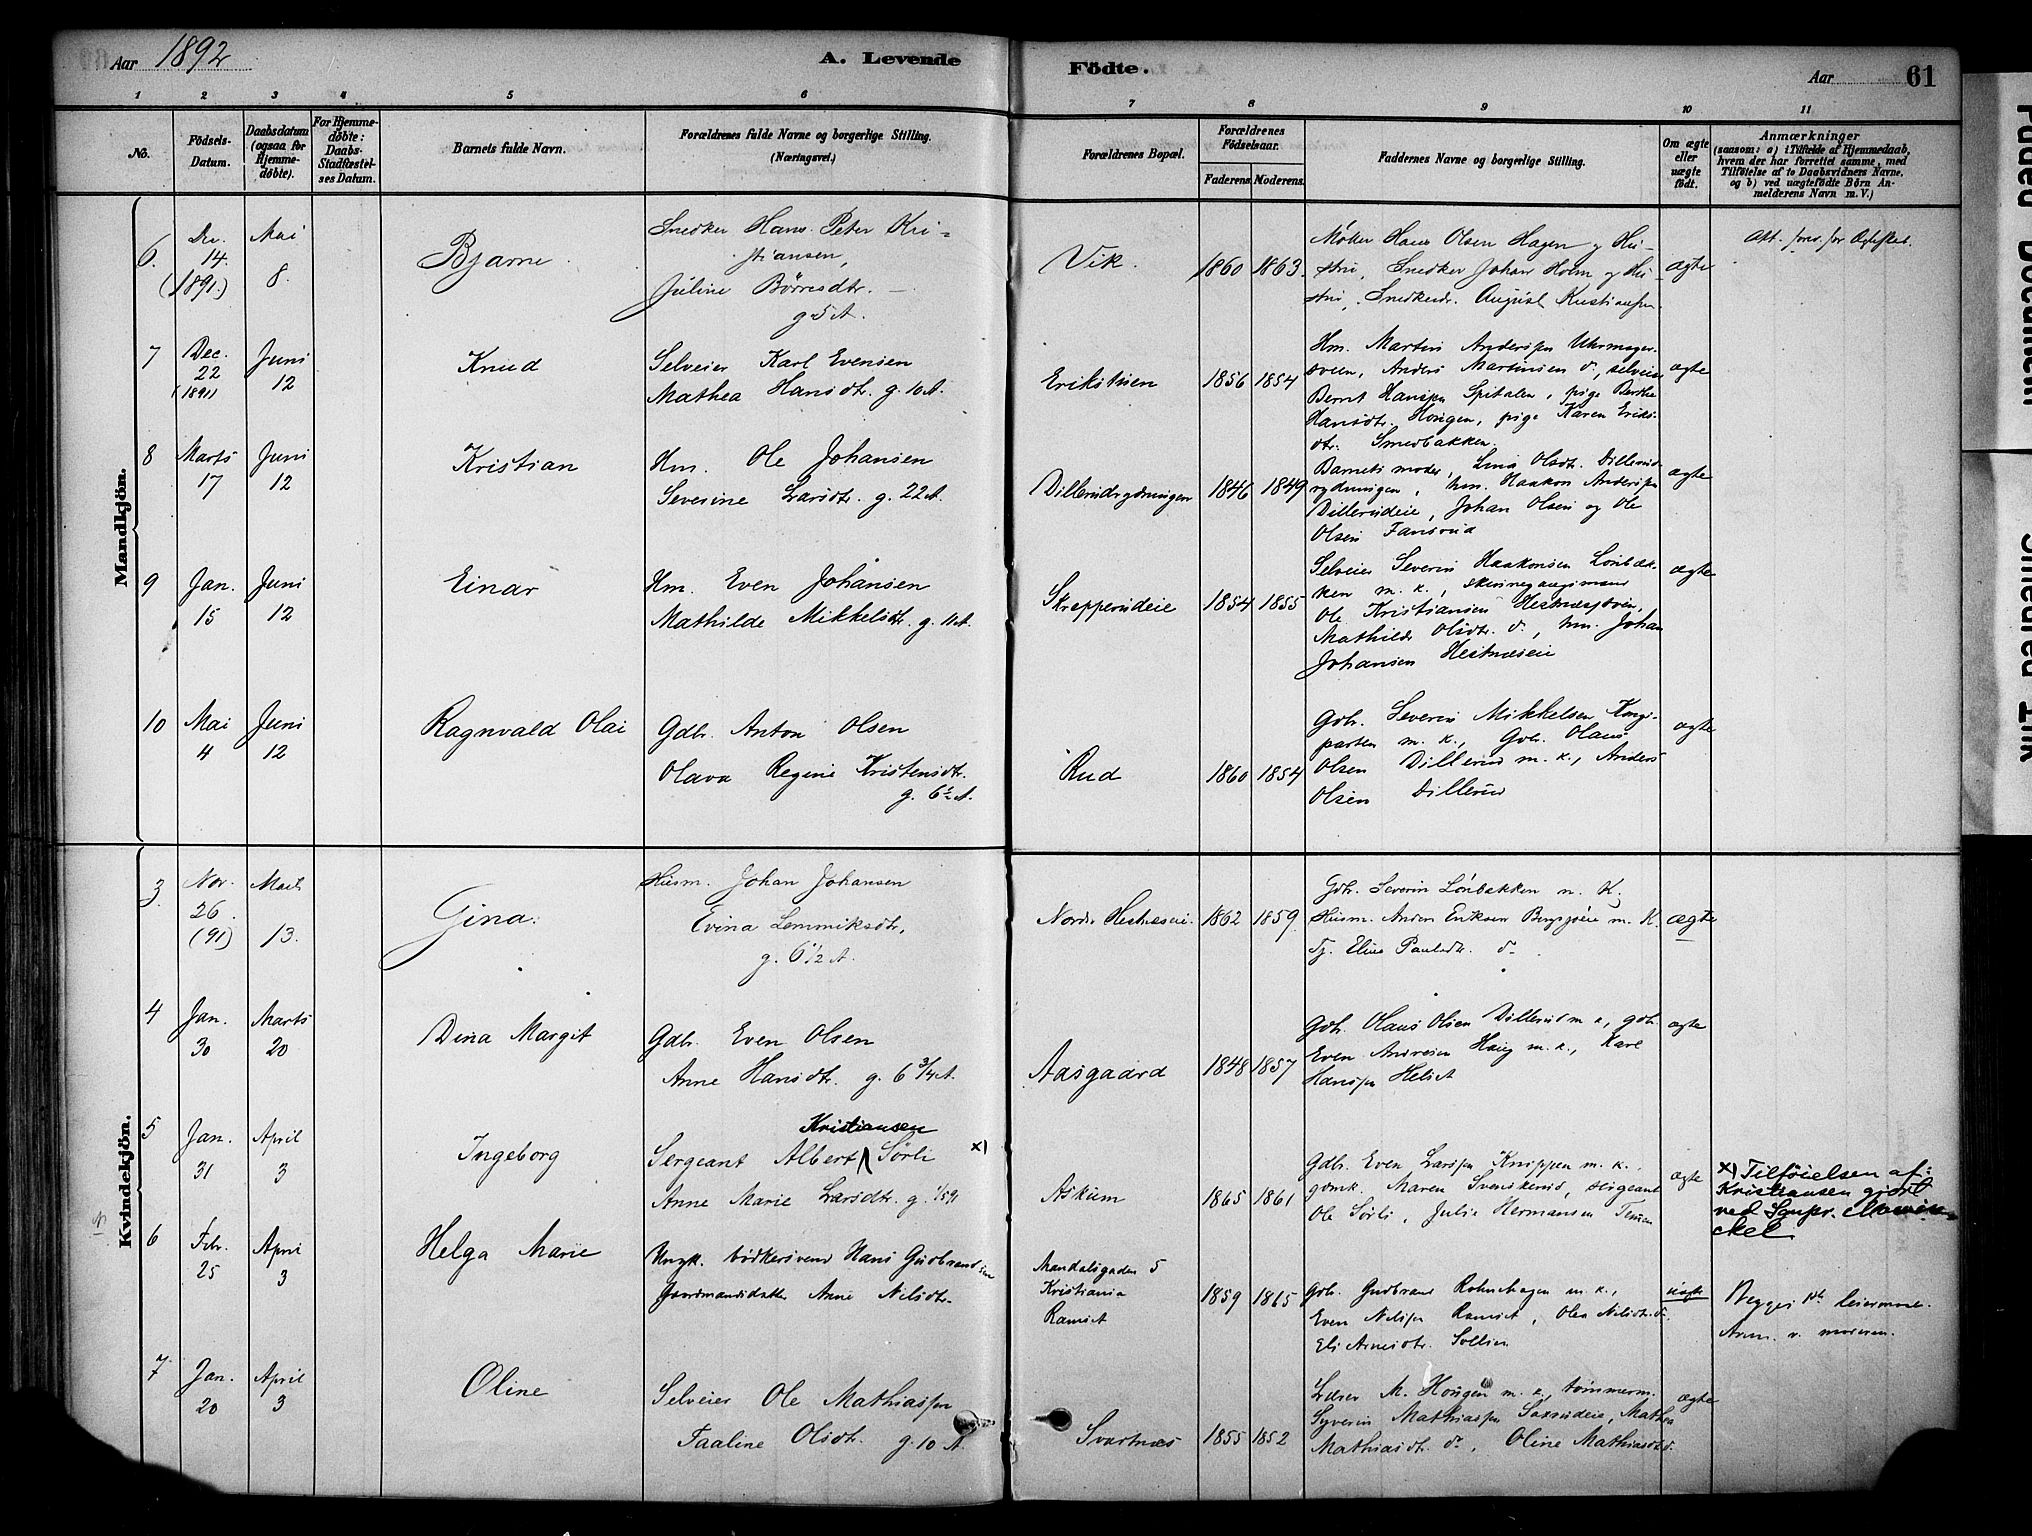 Aar 1892
A. Levende Födte.
Aar 61
1 2 3 4 5 6 7 8 9 10 11
No.
Födsels-Datum.
Daabsdatum (ogsaa for Hjemmedöbte).
For Hjemmedöbte: Daabs-Stadfæstelses Datum.
Barnets fulde Navn.
Forældrenes fulde Navne og borgerlige Stilling. (Næringsvei.)
Forældrenes Bopæl.
Forældrenes Födselsaar.
Faderens. Moderens.
Faddernes Navne og borgerlige Stilling.
Om ægte eller uægte födt.
Anmærkninger
(saasom: a) i Tilfælde af Hjemmedaab,
hvem der har forrettet samme, med
Tilföielse af to Daabsvidners Navne,
og b) ved uægtefödte Börn Anmelderens Navn m. V.)
Mandkjön.
6. Dec. 14 (1891.) Mai 8.
Bjarne
Snedker Hans Peter Kristiansen,
Juline Börresdtr. —
g 5 A.
Vik. 1860 1863.
Møller Hans Olsen Hagen og Hustru, Snedker Johan Holm og Hustru, Snedkersv. August Kristiansen
ægte
7 Dec. 22 (1891) Juni 12
Knud
Selveier Karl Evensen
Mathea Hansdtr. g. 10 A.
Erikstuen 1856 1854
Hm. Martin Andersen Uhrmagersveen, Anders Martinsen do, selveier
Bernt Hansen Spitalen, pige Berthe
Hansdtr. Hougen, pige Karen Eriksdtr. Smedbakken.
ægte
8 Marts 17 Juni 12
Kristian
Hm. Ole Johansen
Severine Larsdtr. g. 22 A.
Dillerudrydningen 1846 1849
Barnets moder, Lina Olsdtr. Dillerudrydningen, hm. Haakon Andersen
Dillerudeie, Johan Olsen og Ole
Olsen Fansrud
ægte
9 Jan. 15 Juni 12
Einar
Hm. Even Johansen
Mathilde Mikkelsdtr. g. 11 A.
Skrepperudeie 1854 1855
Selveier Severin Haakonsen Lönbækken m. k., skinnegangsmand
Ole Kristiansen Hestnæstveen,
Mathilde Olsdtr. do, hm. Johan
Johansen Hestnæseie
ægte
10 Mai 4 Juni 12
Ragnvald Olai
Gdb. Anton Olsen
Olava Regine Kristensdtr.
g. 6½ A.
Rud 1860 1854
Gdb. Severin Mikkelsen Kongsparten m. k., Gdb. Olaus
Olsen Dillerud m. k., Anders
Olsen Dillerud
ægte
Kvindekjön.
3 Nov. 26 (91) Marts 13.
Gina.
Husm. Johan Johansen
Evina Lemmiksdtr,
g. 6 1/2 A.
Nordr Hestnæseie. 1862 1859.
Gdb. Severin Lönbakken m. K.
Husm. Anders Eriksen Bergsjöeie m. K.
Tj. Eline Paulsdtr. do
ægte
4 Jan. 30 Marts 20
Dina Margit
Gdb. Even Olsen
Anne Hansdtr. g. 6 3/4 A.
Aasgaard 1848 1857
Gdb. Olaus Olsen Dillerud m. k., gdb.
Even Andresen Haug m. k., Karl
Hansen Helset
ægte
5 Jan. 31 April 3
Ingeborg
Kristiansen
Sergeant Albert Sörli x)
Anne Marie Larsdtr. g. 1/5 91
Askum 1865 1861
Gdb. Even Larsen Knippen m. k.,
gdmk. Maren Svenskerud, sergeant
Ole Sörli, Julie Hermansen
ægte
x) Tilföielsen af:
Kristiansen gjort
ved Sognpr. Mowinckel
6 Febr. 25 April 3
Helga Marie
Ungk. bödkersvend Hans Gudbrandsen
Gaardmandsdatter Anne Nilsdtr.
Mandalsgaden 5
Kristiania
Ramset
1859 1865
Gdb. Gudbrand Rohnehagen m. k.,
Even Nilsen Ramset, Olea Nilsdtr. do
Eli Arnesdtr. Sollien
uægte
Begges 1ste leiermaal.
Anm. v. moderen.
7 Jan. 20 April 3
Oline
Selveier Ole Mathiassen
Taaline Olsdtr. g. 10 A.
Svartnæs 1855 1852
Lærer M. Hougen m. k., tömmerm.
Syverin Mathiassen Saxrudeie, Mathea
Mathiasdtr. do, Oline Mathiasdtr. do
ægte
Faded Document
Smeared Ink